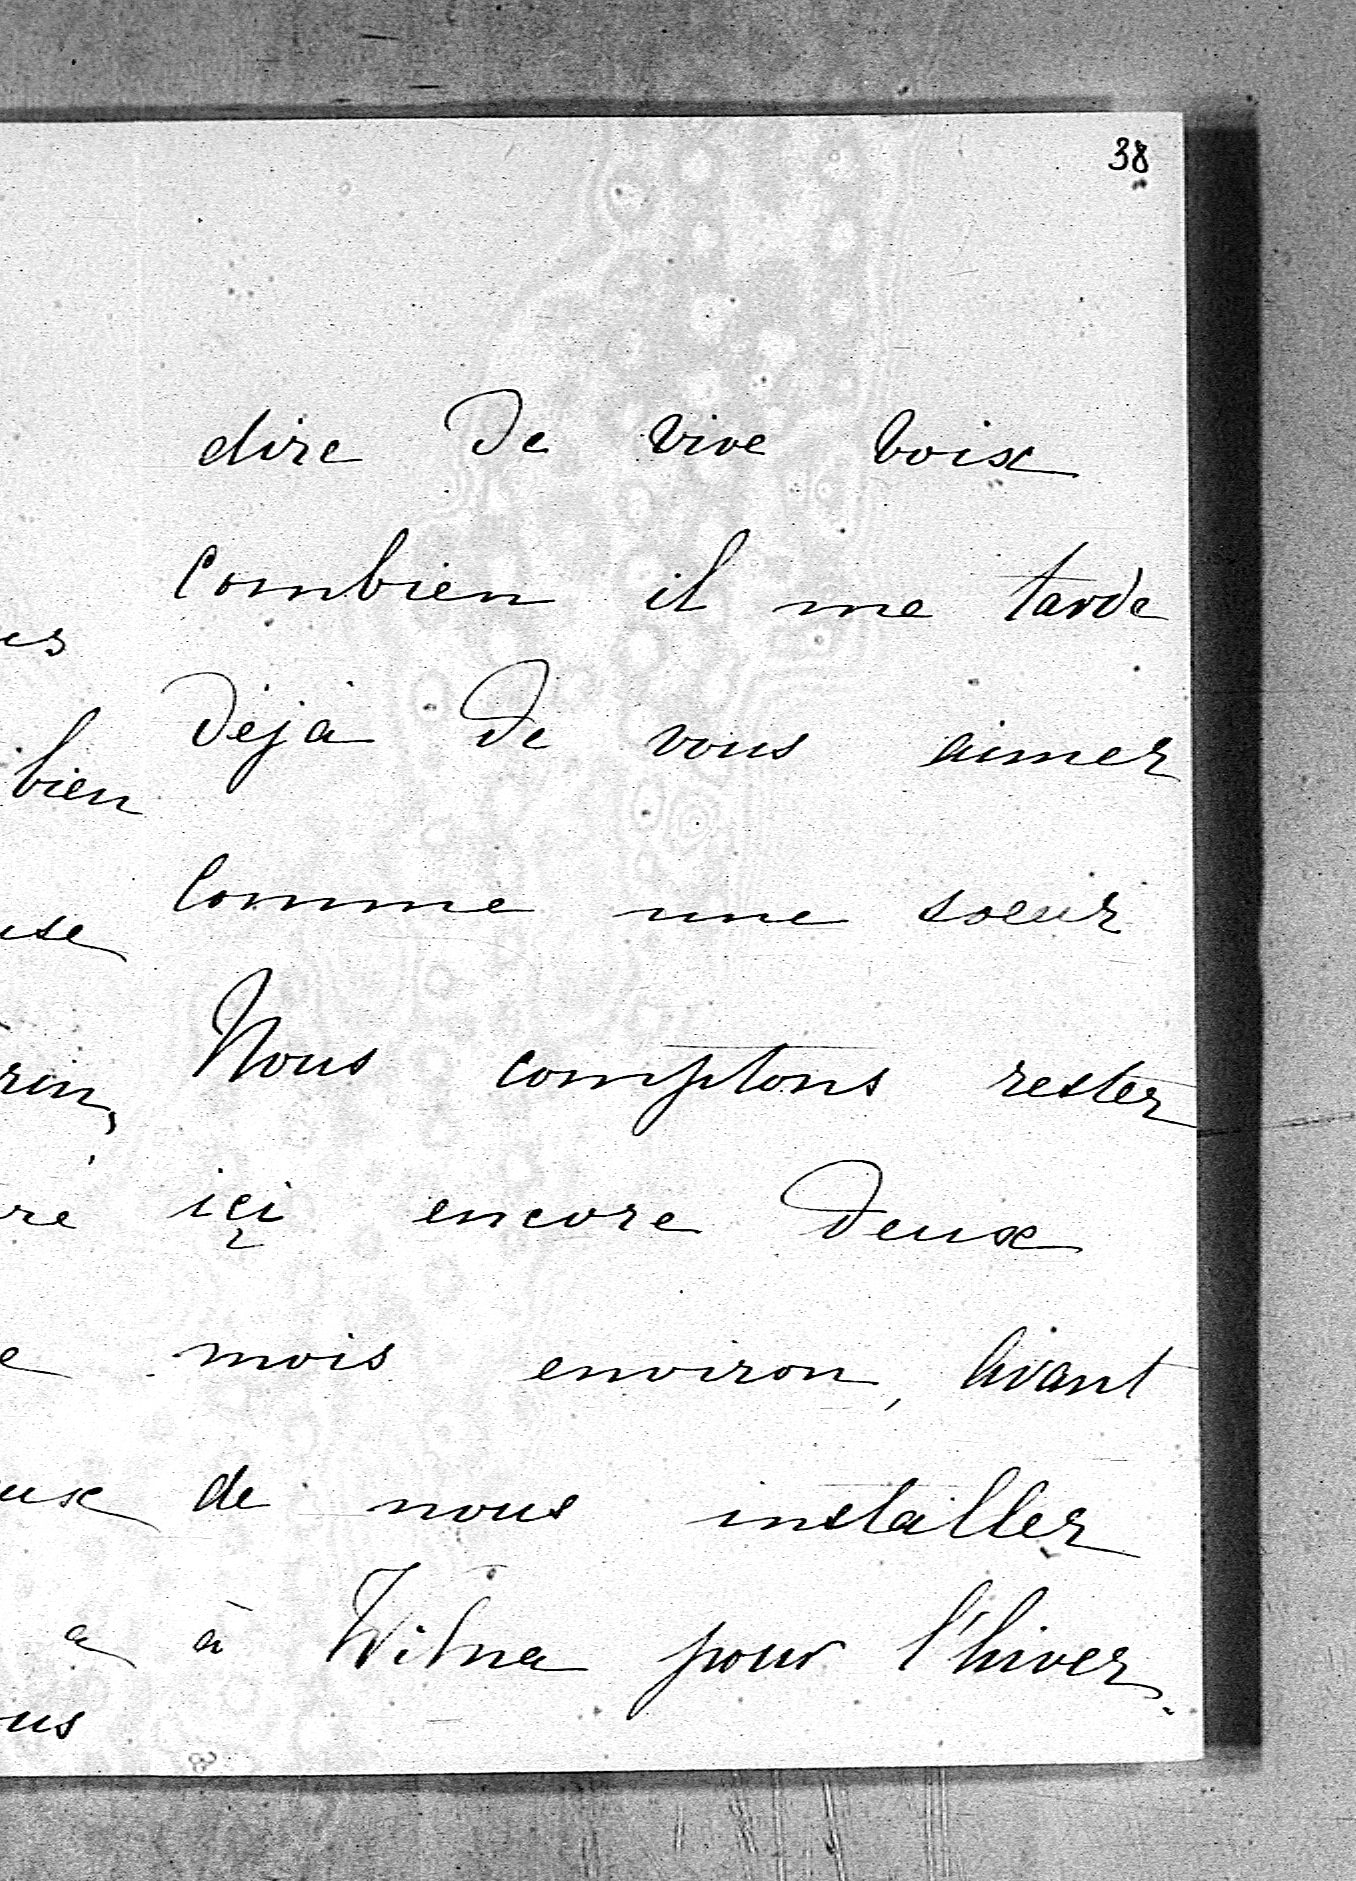 38
dire de vive voix
combien il me tarde
déjà de vous aimer
comme une soeur
Nous comptons rester
içi encore deux
mois environ, avant
de nous installer
à Wilna pour l'hiver.
bien
a